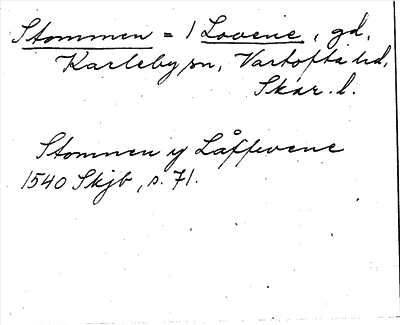 Stommen = 1 Lovene, gd,
Karleby sn, Vartofta hd,
Skar. l.
Stomnen y Låffuene
1540 Skjb, s. 71.